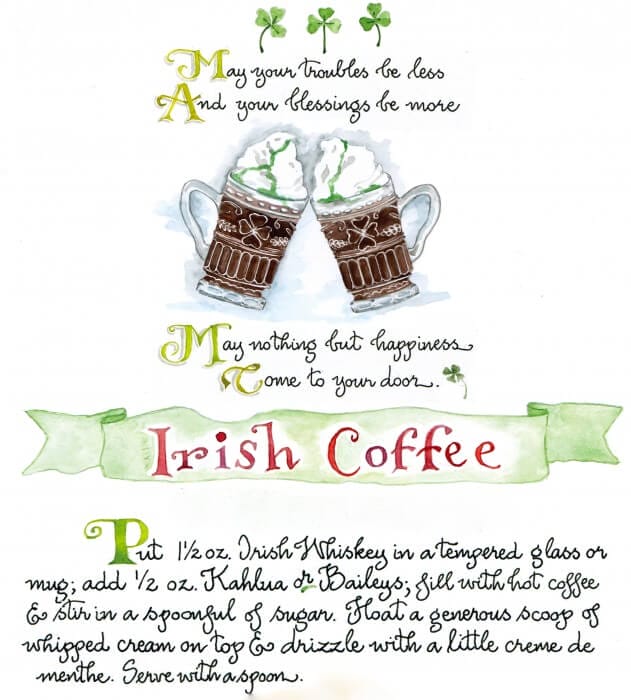 May your troubles be less
And your blessings be more
May nothing but happiness
Come to your door.
Irish Coffee
Put 1½ oz. Irish Whiskey in a tempered glass or
mug; add ½ oz. Kahlua or Baileys; fill with hot coffee
& stir in a spoonful of sugar. Float a generous scoop of
whipped cream on top & drizzle with a little creme de
menthe. Serve with a spoon.